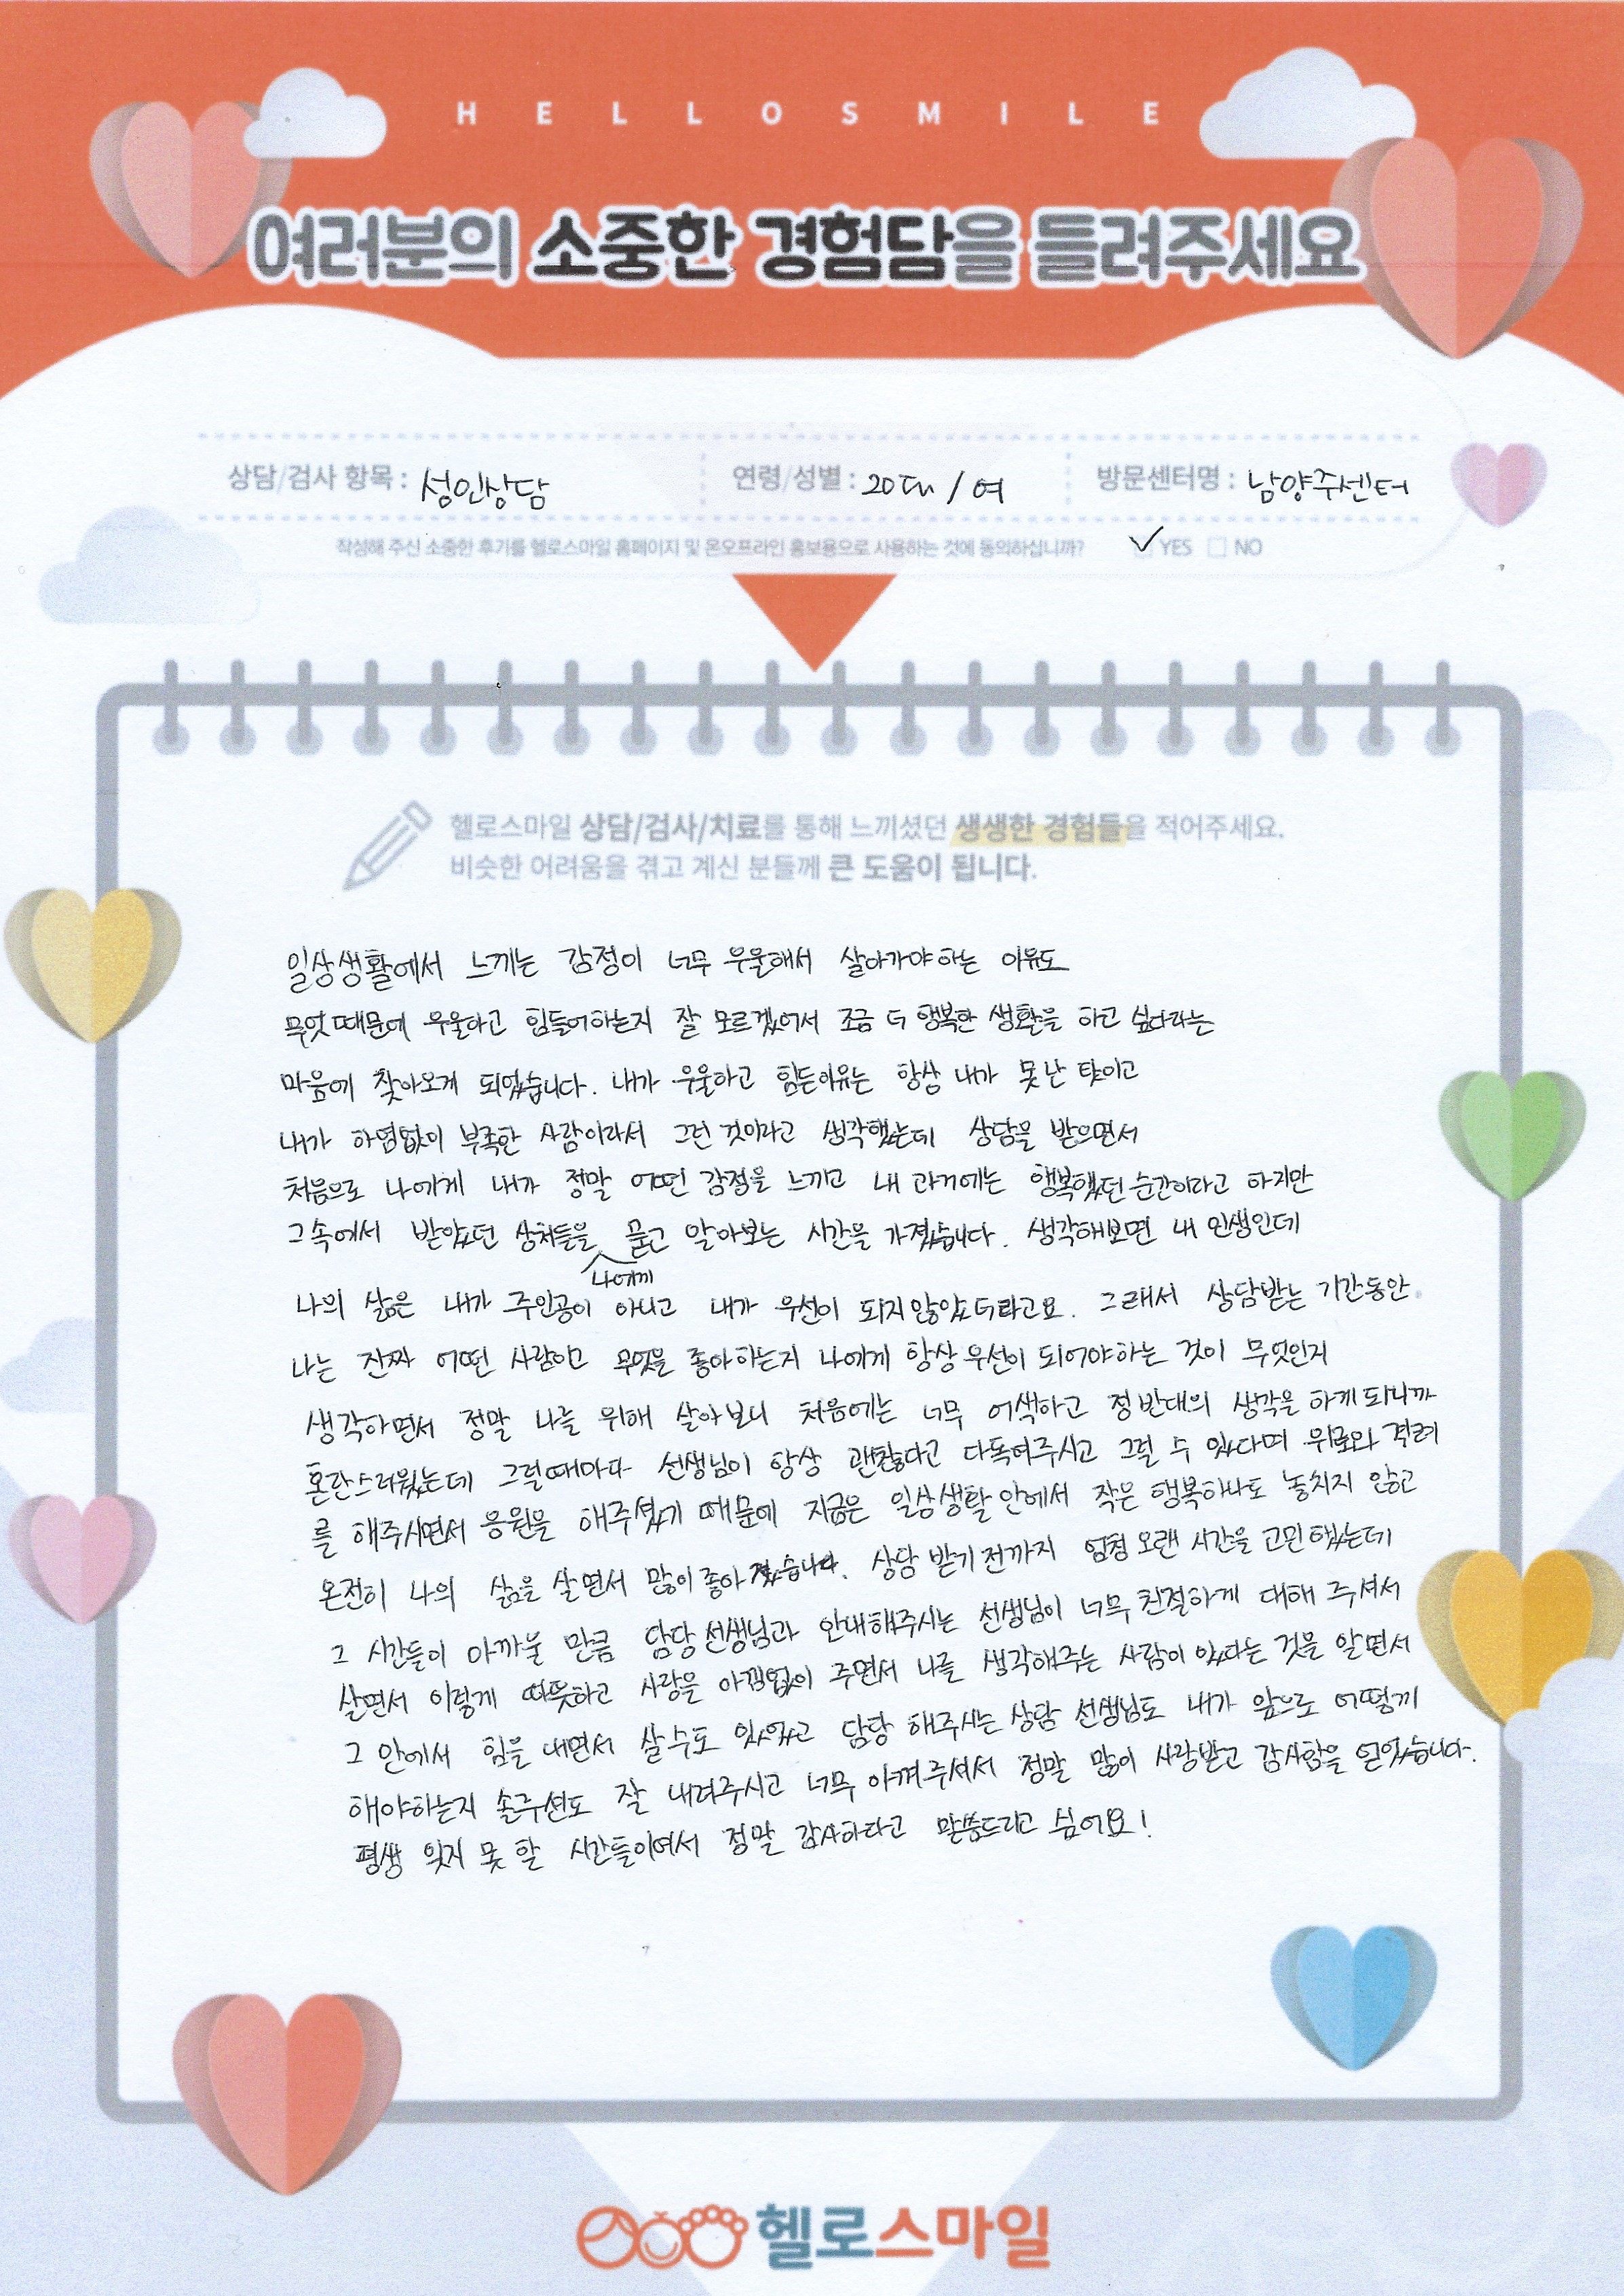 HELLOSMILE
여러분의 소중한 경험담을 들려주세요
상담/검사 항목 : 성인상담 연령/성별 : 20대 / 여 방문센터명 : 남양주센터
작성해 주신 소중한 후기를 헬로스마일 홈페이지 및 온오프라인 홍보용으로 사용하는 것에 동의하십니까? ✓ YES □ NO
헬로스마일 상담/검사/치료를 통해 느끼셨던 생생한 경험들을 적어주세요.
비슷한 어려움을 겪고 계신 분들께 큰 도움이 됩니다.
일상생활에서 느끼는 감정이 너무 우울해서 살아가야하는 이유도
무엇때문에 우울하고 힘들어하는지 잘 모르겠어서 조금 더 행복한 생활을 하고 싶다라는
마음에 찾아오게 되었습니다. 내가 우울하고 힘든이유는 항상 내가 못난 탓이고
내가 하염없이 부족한 사람이라서 그런 것이라고 생각했는데 상담을 받으면서
처음으로 나에게 내가 정말 어떤 감정을 느끼고 내 과거에는 행복했던 순간이라고 하지만
그속에서 받았던 상처들을 묻고 알아보는 시간을 가졌습니다. 생각해보면 내 인생인데
나에게
나의 삶은 내가 주인공이 아니고 내가 우선이 되지않았더라고요. 그래서 상담받는 기간동안
나는 진짜 어떤 사람이고 무엇을 좋아하는지 나에게 항상 우선이 되어야하는 것이 무엇인지
생각하면서 정말 나를 위해 살아보니 처음에는 너무 어색하고 정반대의 생각을 하게되니까
혼란스러웠는데 그럴때마다 선생님이 항상 괜찮다고 다독여주시고 그럴 수 있다며 위로와 격려
를 해주시면서 응원을 해주셨기 때문에 지금은 일상생활 안에서 작은 행복하나도 놓치지 않고
온전히 나의 삶을 살면서 많이 좋아졌습니다. 상담 받기 전까지 엄청 오랜 시간을 고민했는데
그 시간들이 아까울 만큼 담당 선생님과 안내해주시는 선생님이 너무 친절하게 대해 주셔서
살면서 이렇게 따뜻하고 사랑을 아낌없이 주면서 나를 생각해주는 사람이 있다는 것을 알면서
그 안에서 힘을 내면서 살 수도 있었고 담당 해주시는 상담 선생님도 내가 앞으로 어떻게
해야하는지 솔루션도 잘 내려주시고 너무 아껴주셔서 정말 많이 사랑받고 감사함을 얻었습니다.
평생 잊지 못 할 시간들이여서 정말 감사하다고 말씀드리고 싶어요!
헬로스마일